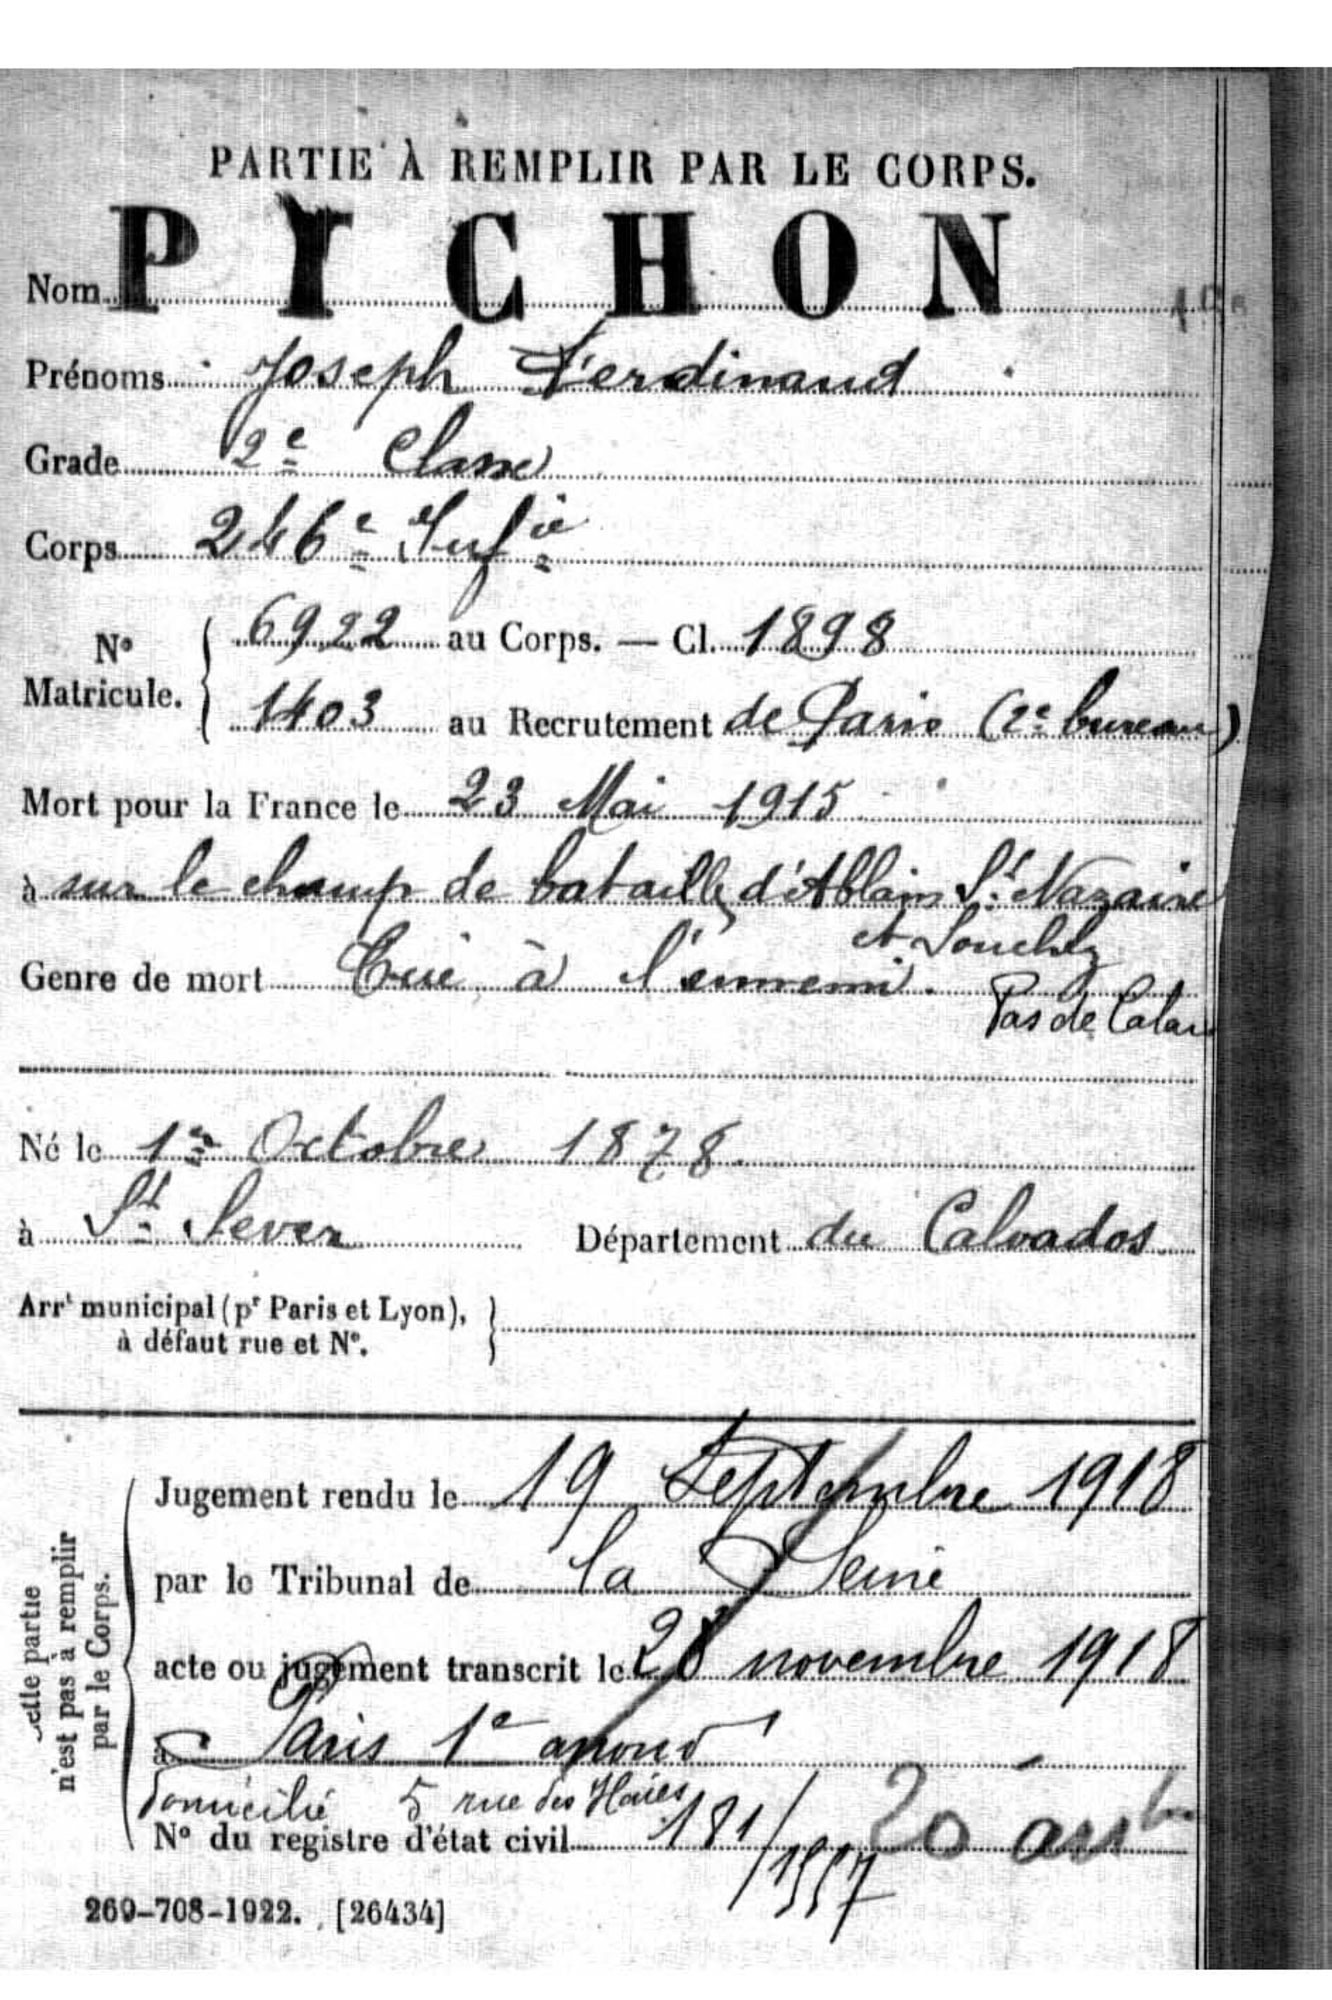 PARTIE À REMPLIR PAR LE CORPS.
Nom PICHON
Prénoms Joseph Ferdinand
Grade 2e Classe
Corps 246e Infie
No Matricule. { 6922 au Corps. — Cl. 1898
1403 au Recrutement de Paris (2e bureau)
Mort pour la France le 23 Mai 1915
à sur le champ de bataille d'Ablain St Nazaire
et Souchez
Genre de mort Tué à l'ennemi.
Pas de Calais
Né le 1er Octobre 1878.
à St Sever Département du Calvados
Arrt municipal (pr Paris et Lyon), à défaut rue et No. }
Cette partie n'est pas à remplir par le Corps.
Jugement rendu le 19 Septembre 1918
par le Tribunal de la Seine
acte ou jugement transcrit le 28 novembre 1918
à Paris 1e arrond
domicilié 5 rue des Haies
No du registre d'état civil 181/1557
20 arrt
269-708-1922. [26434]